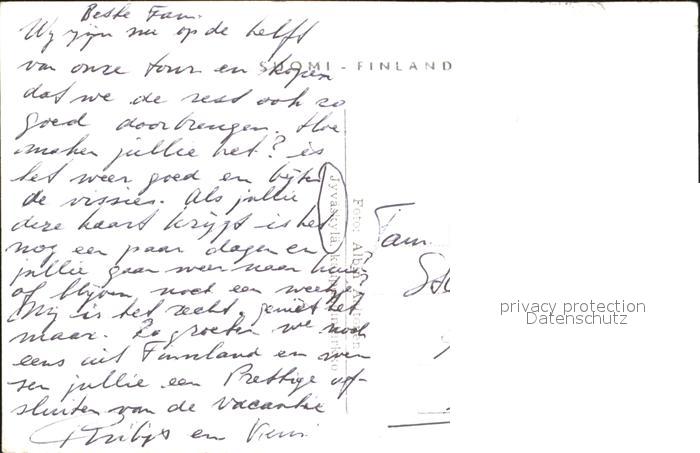 Beste Fam.
Wij zijn nu op de helft
van onze tour en hopen
dat we de rest ook zo
goed doorbrengen. Hoe
maken jullie het? is
het weer goed en bijten
de vissies. Als jullie
deze kaart krijgt is het
nog een paar dagen en
jullie gaan weer naar huis
of blijven noch een weekje,
Mij is het recht, geniet het
maar. Zo groeten we noch
eens uit Finnland en wen
sen jullie een Prettige af-
sluiten van de vacantie
en
SUOMI - FINLAND
Jyväskylä
Foto:
Fam.
privacy protection
Datenschutz